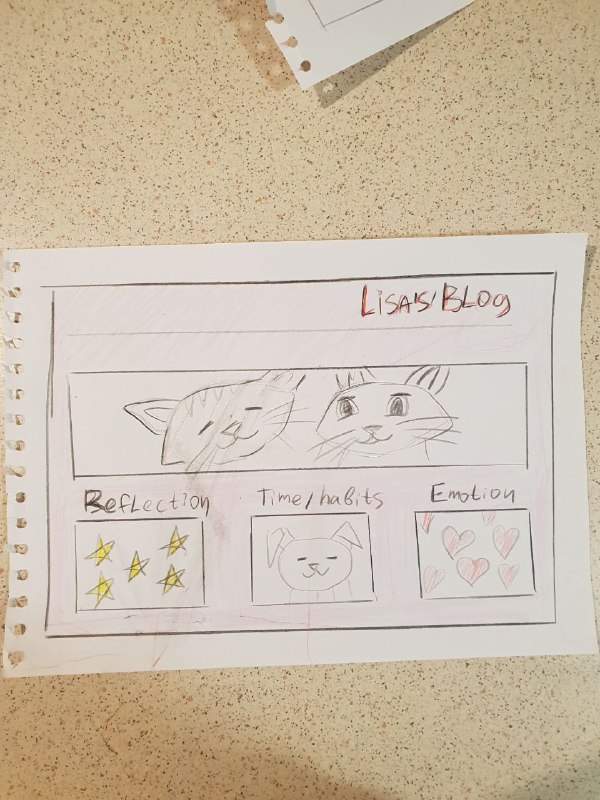 Lisa's/Blog
Reflection Time/habits Emotion